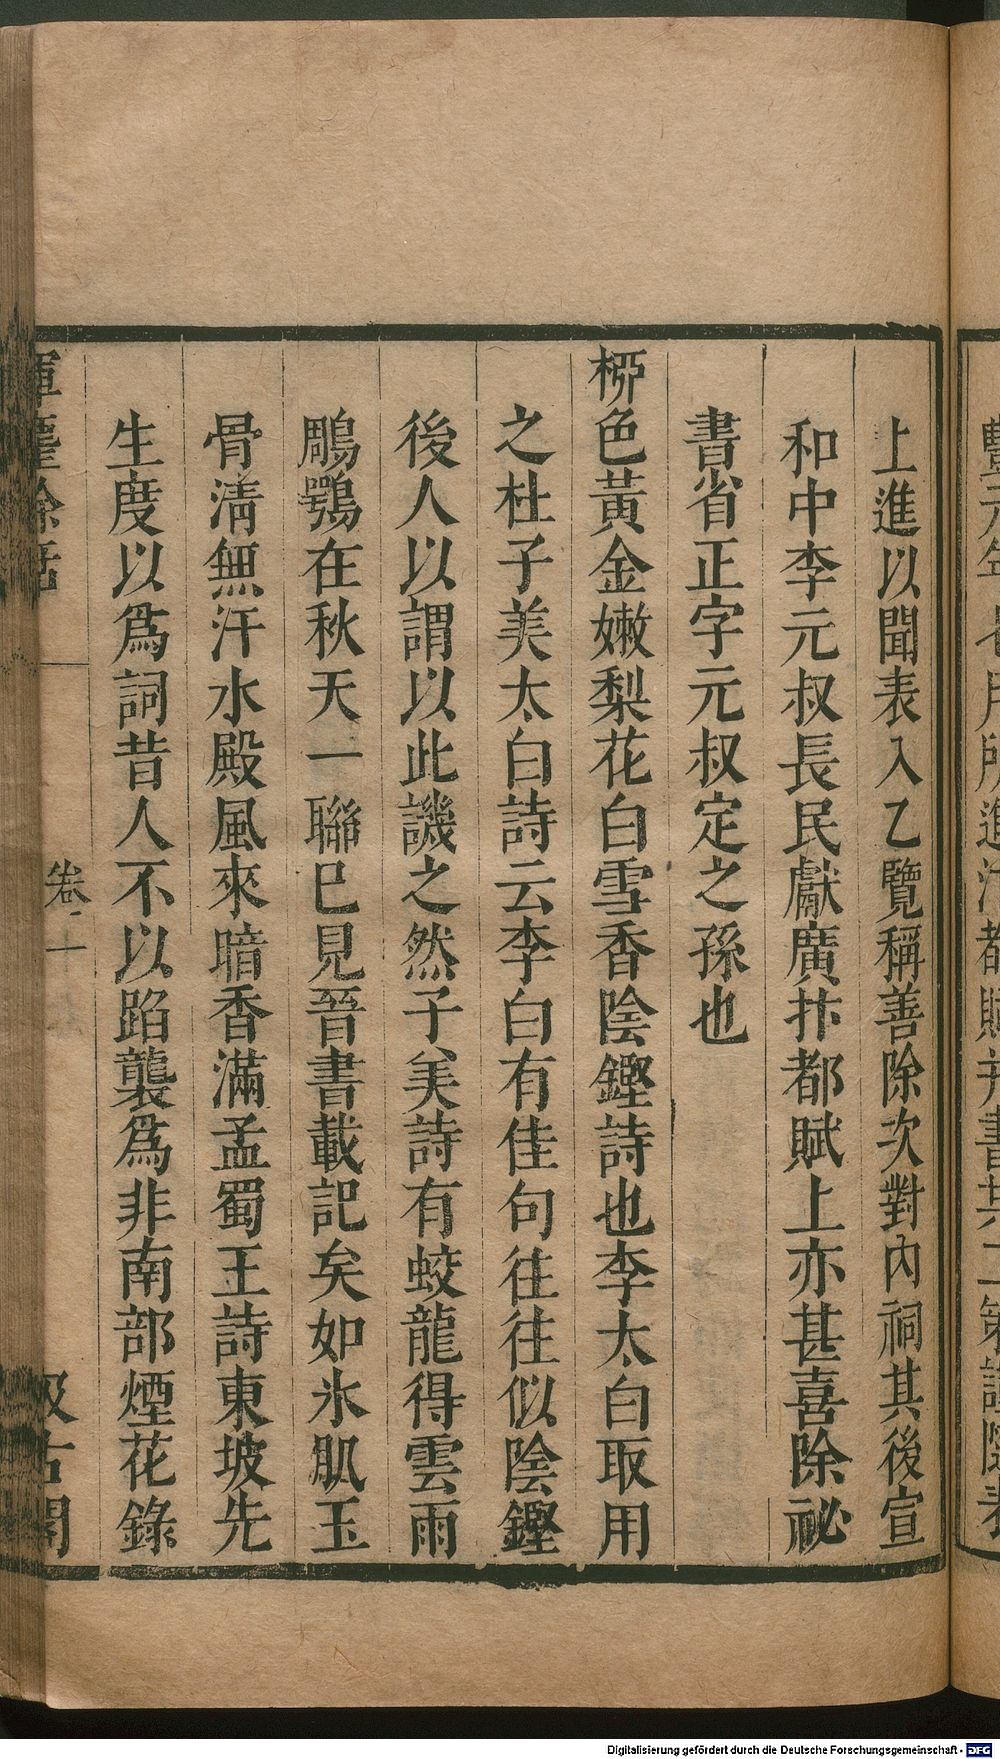 上進以聞表入乙覽稱善除次對內祠其後宣
和中李元叔長民獻廣汴都賦上亦甚喜除祕
書省正字元叔定之孫也
桺色黃金嫩梨花白雪香陰鏗詩也李太白取用
之杜子美太白詩云李白有佳句往往似陰鏗
後人以謂以此譏之然子美詩有蛟龍得雲雨
鵰鶚在秋天一聯巳見晉書載記矣如氷肌玉
骨清無汗水殿風來暗香滿孟蜀王詩東坡先
生度以爲詞昔人不以蹈襲爲非南部煙花錄
揮麈餘話
卷一
汲古閣
Digitalisierung gefördert durch die Deutsche Forschungsgemeinschaft - DFG